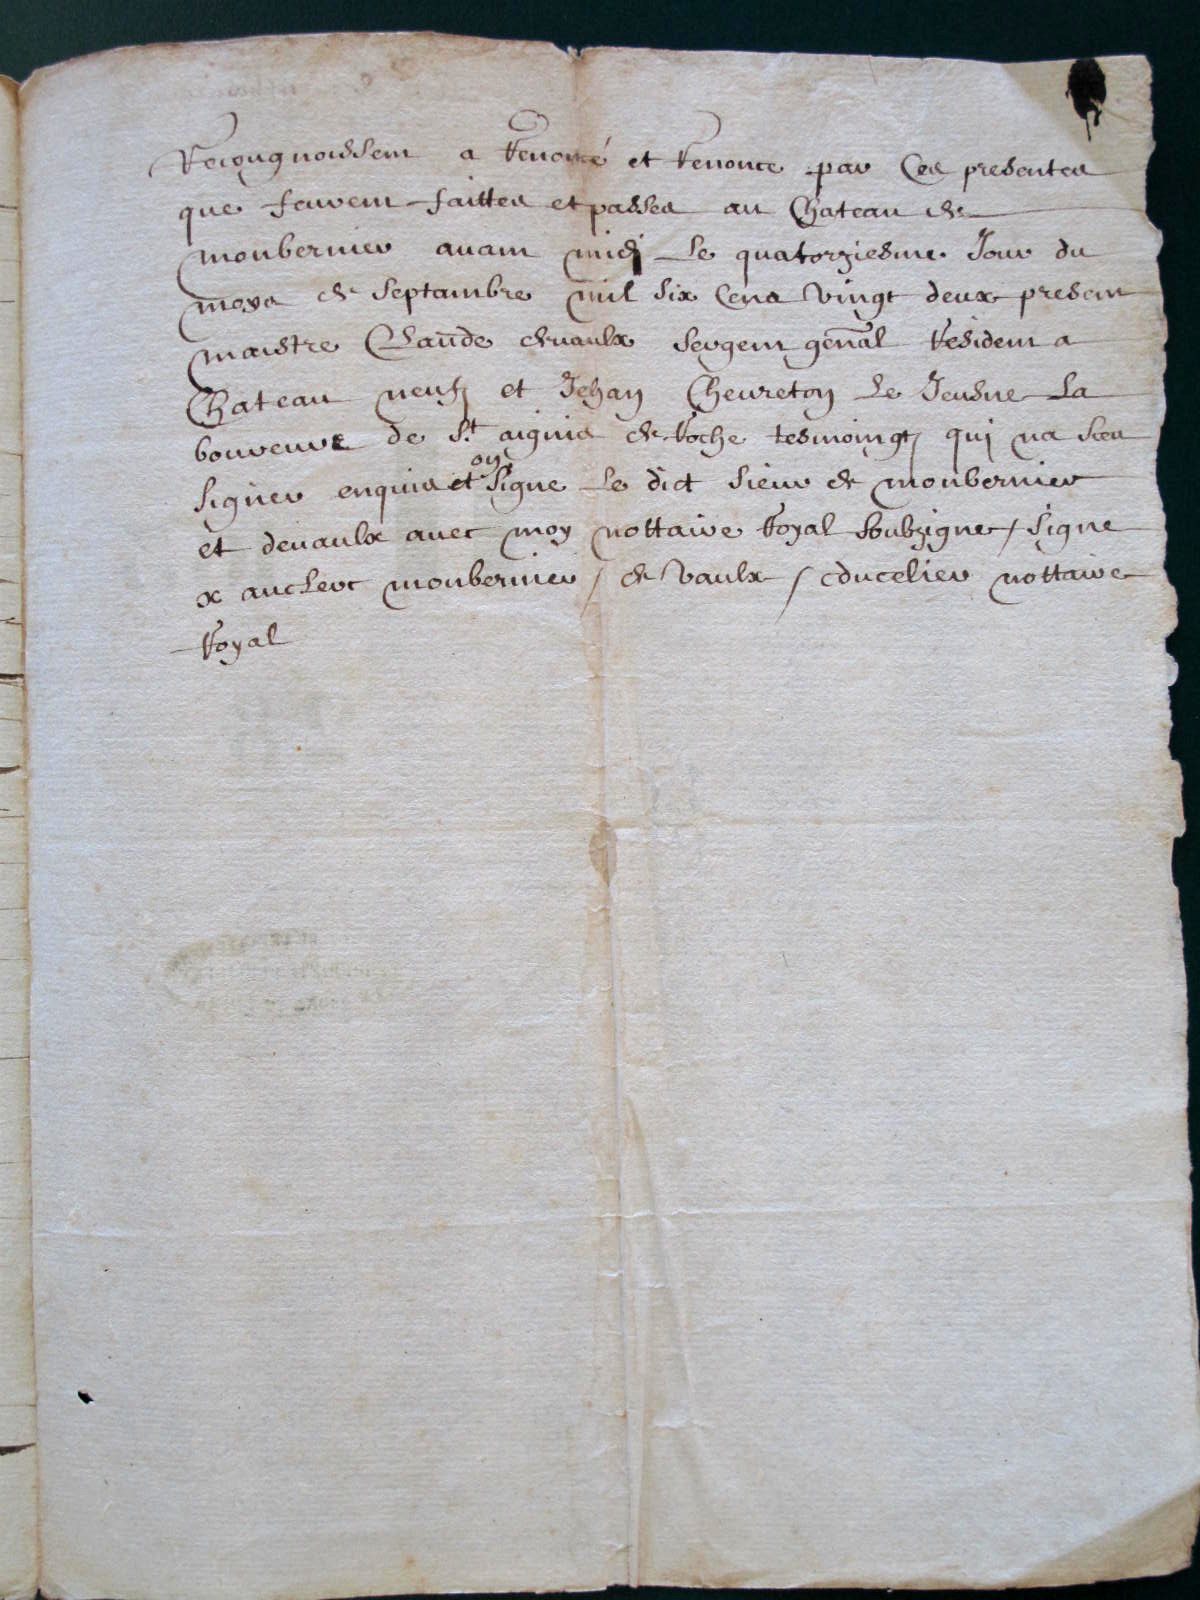 Recougnoissent a Renoncé et Renonce par Ces presentes
que feurent faittes et passes au Chateau de
monbernier avant midj Le quatorziesme Jour du
moys de Septambre mil six Cens vingt deux present
maistre Claude devaulx sergent gen̄al Resident a
Chateau neuf et Jehan Chevreton Le Jeusne La
de St aignis de Roche tesmoingtz quj na sceu
signer enquis et ont signe Le dict sieur de monbernier
et devaulx avec moy nottaire Royal soubzigne / signe
x monbernier / de vaulx / nottaire
Royal